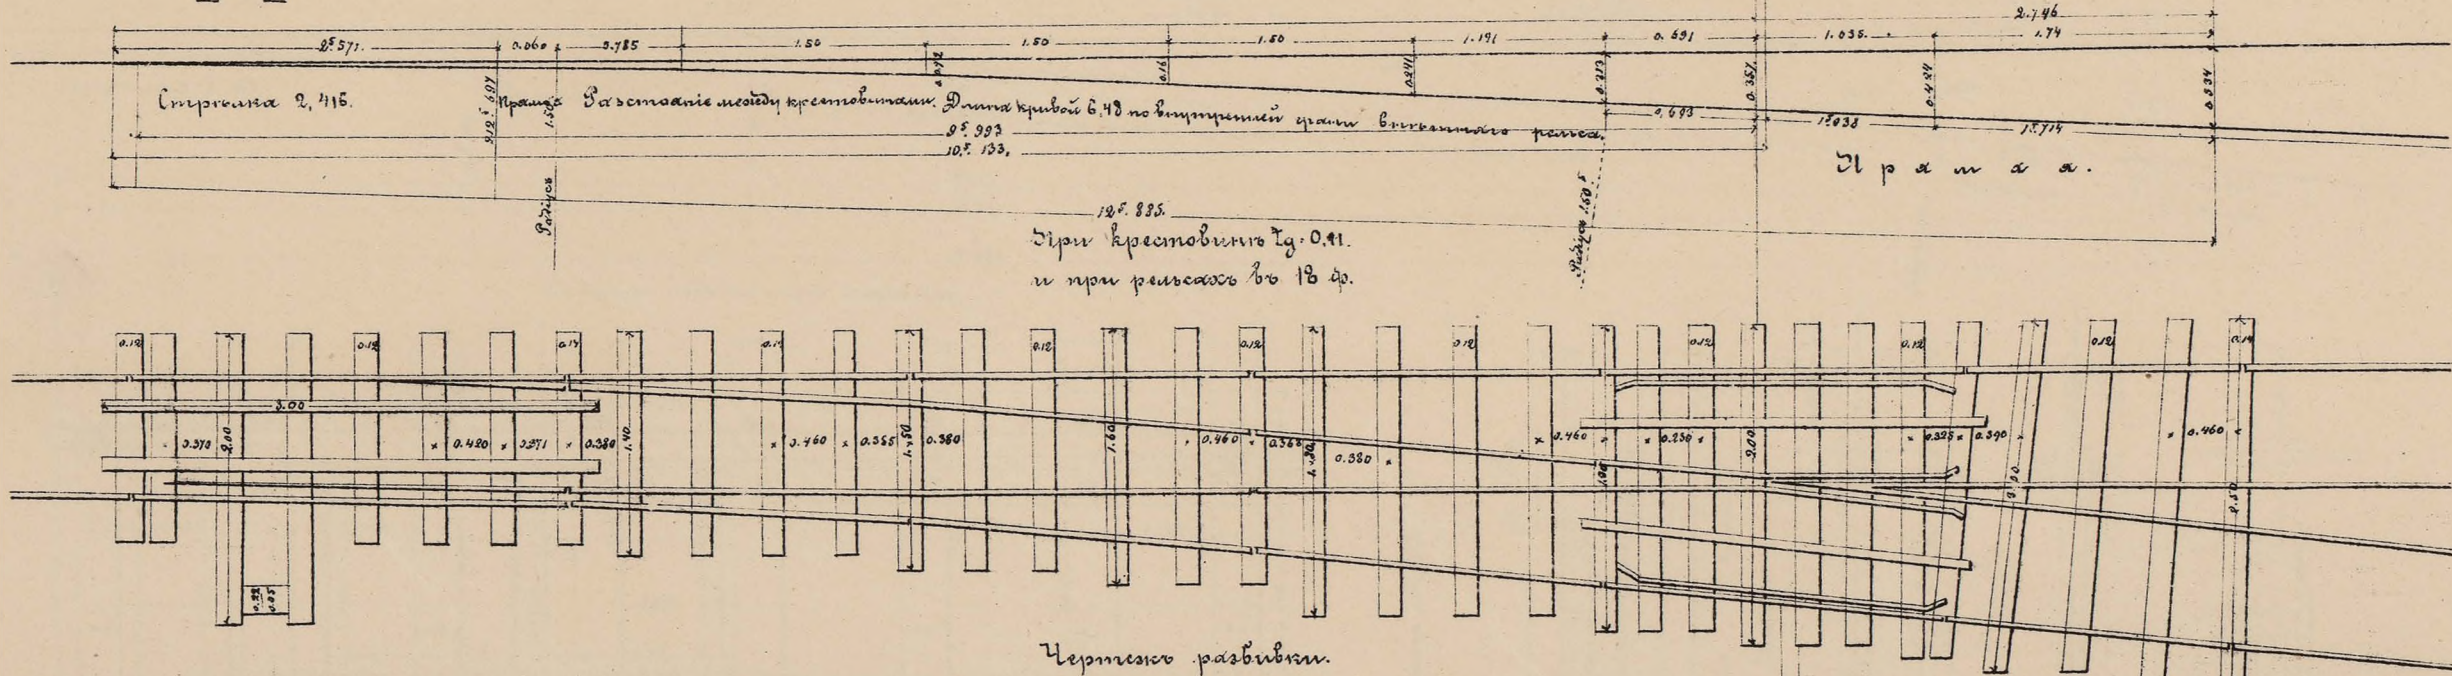 2.746
2ˢ571. 0.060 0.785 1.50 1.50 1.50 1.191 0.691 1.035. 1.74
0.072 0.16 0.241 0.313 0.357 0.424 0.534
Стрѣлка 2,416. Прямая Разстояніе между крестовинами. Длина кривой 6,48 по внутренней грани внѣшняго рельса.
0,693 1ˢ038 1ˢ714
9ˢ 993
10ˢ. 133.
Прямая.
Радіусъ
Радіусъ 150ˢ
12ˢ. 885.
При крестовинѣ Tg. 0,11.
и при рельсахъ въ 18 ф.
0.12 0.12 0.12 0.12 0.12 0.12 0.12 0.12 0.12
3.00
0.370 2.00 0.420 0.271 0.380 1.40 0.460 0.385 1.50 0.380 1.60 0.460 0.368 0.380 0.460 0.230 2.00 0.325 0.390 0.460 2.50
0.22 0.05
Чертежъ разбивки.